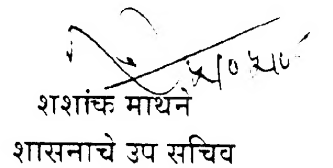 शशांक माथने
शासनाचे उप सचिव